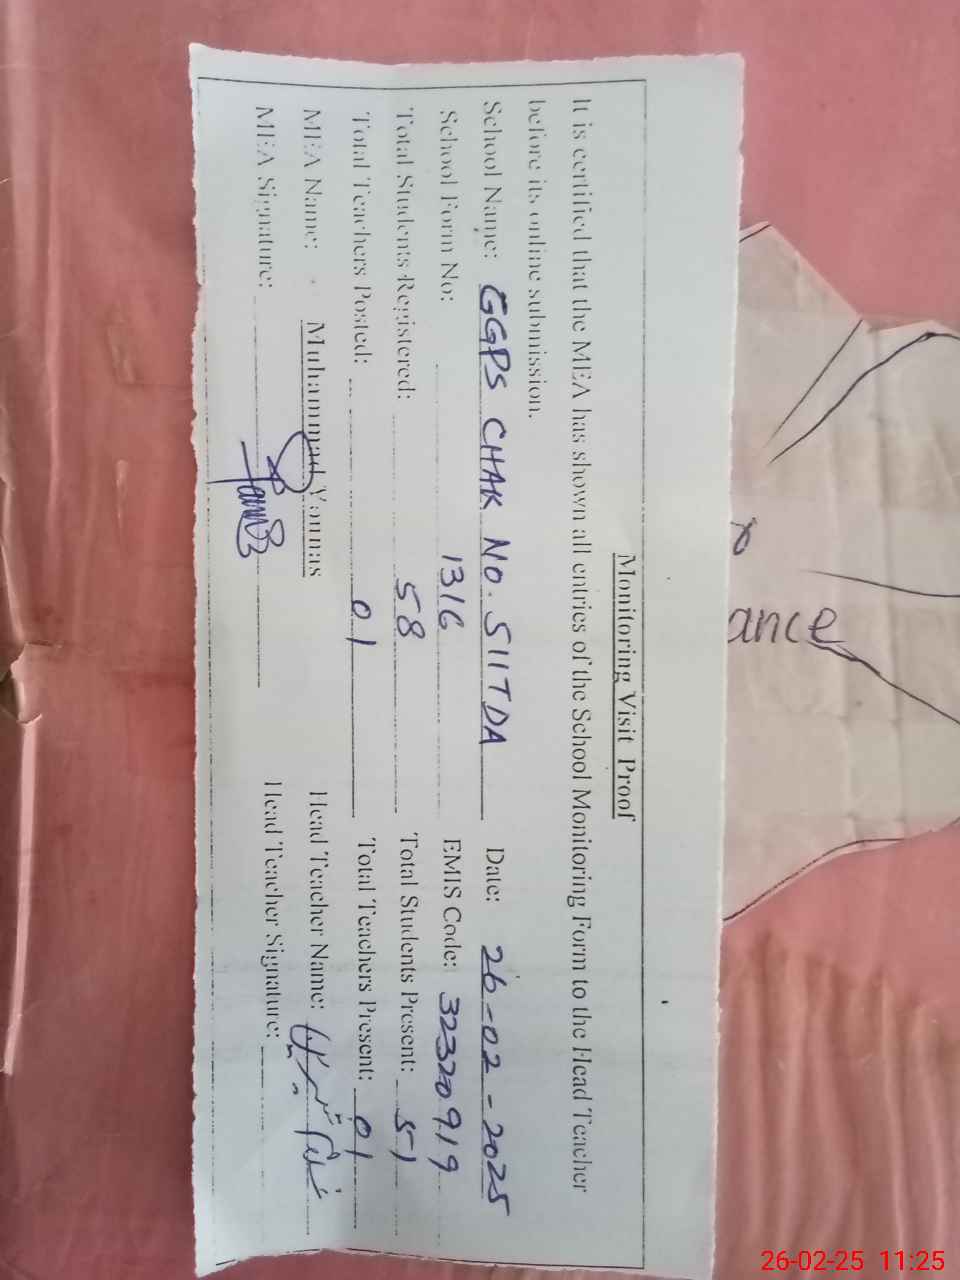 Monitoring Visit Proof
It is certified that the MEA has shown all entries of the School Monitoring Form to the Head Teacher
before its online submission.
School Name: GGPS CHAK NO. 511TDA Date: 26-02-2025
School Form No: 1316 EMIS Code: 32320919
Total Students Registered: 58 Total Students Present: 51
Total Teachers Posted: 01 Total Teachers Present: 01
MEA Name: Muhammad Younas Head Teacher Name:
MEA Signature: Head Teacher Signature:
ance
26-02-25 11:25